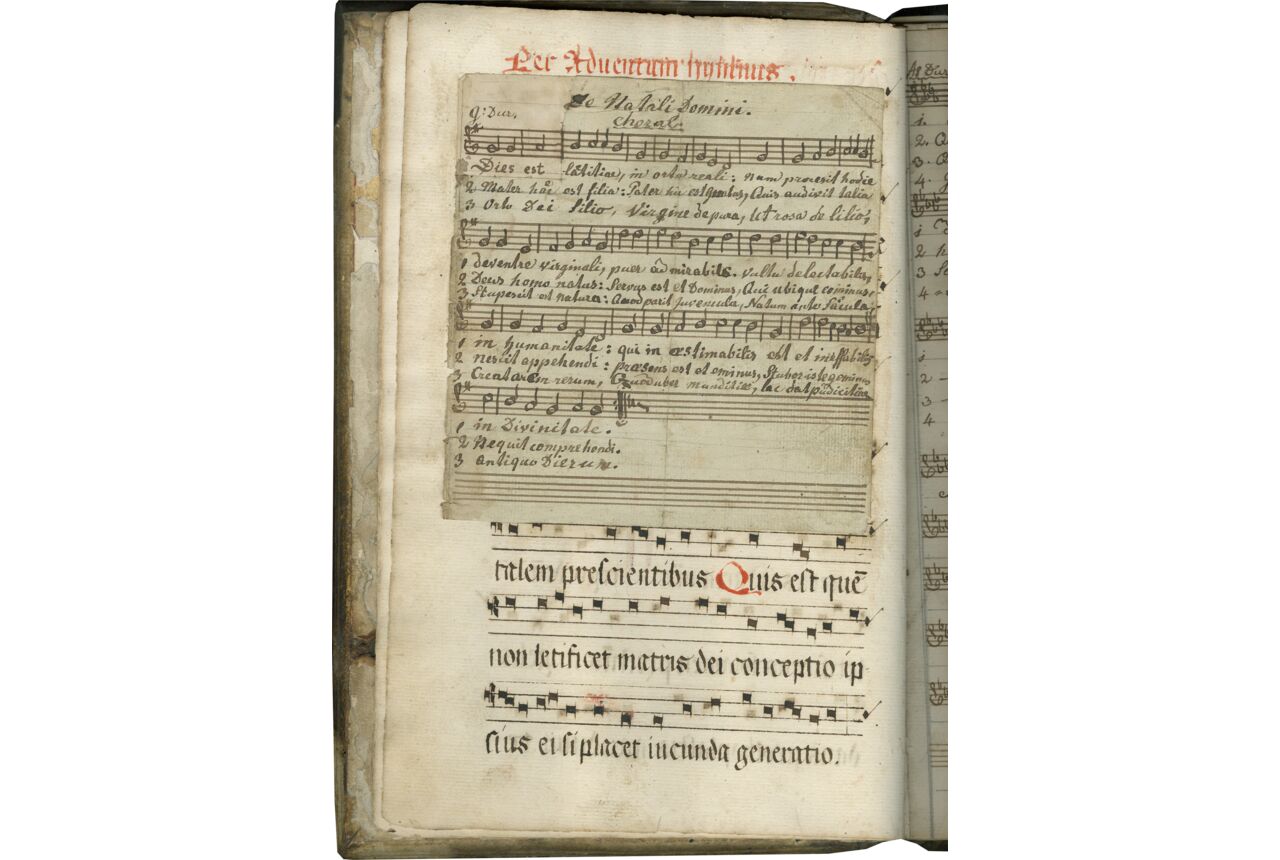 Per Adventum hymnus.
De Natali Domini.
Choral.
g: Dur.
Dies est lætitiae, in ortu reali: nam processit hodie
2 Mater hæc est filia: Pater hic est genitus, Quis audivit talia
3 Orto Dei filio, Virgine de pura, Ut rosa de lilio,
1 de ventre virginali, puer admirabilis. vultu delectabilis,
2 Deus homo natus: Servus est et Dominus, Qui ubique cominus,
3 Stupescit est natura: Quod parit juvencula, Natum ante Sæcula,
1 in humanitate: qui inæstimabilis est et ineffabilis
2 nescit appehendi: præsens est et eminus, Stupor iste geminus
3 Creatorem rerum, Quod uber munditiæ, lac dat pudicitiæ
1 in Divinitate.
2 Nequit comprehendi.
3 antiquo Dierum.
talem prescientibus Quis est quē
non letificet matris dei conceptio ip-
sius ei si placet iucunda generatio.
A# Dur
1.
2. Q
3. Q
4.
1
2
3
4
1
2
3
4